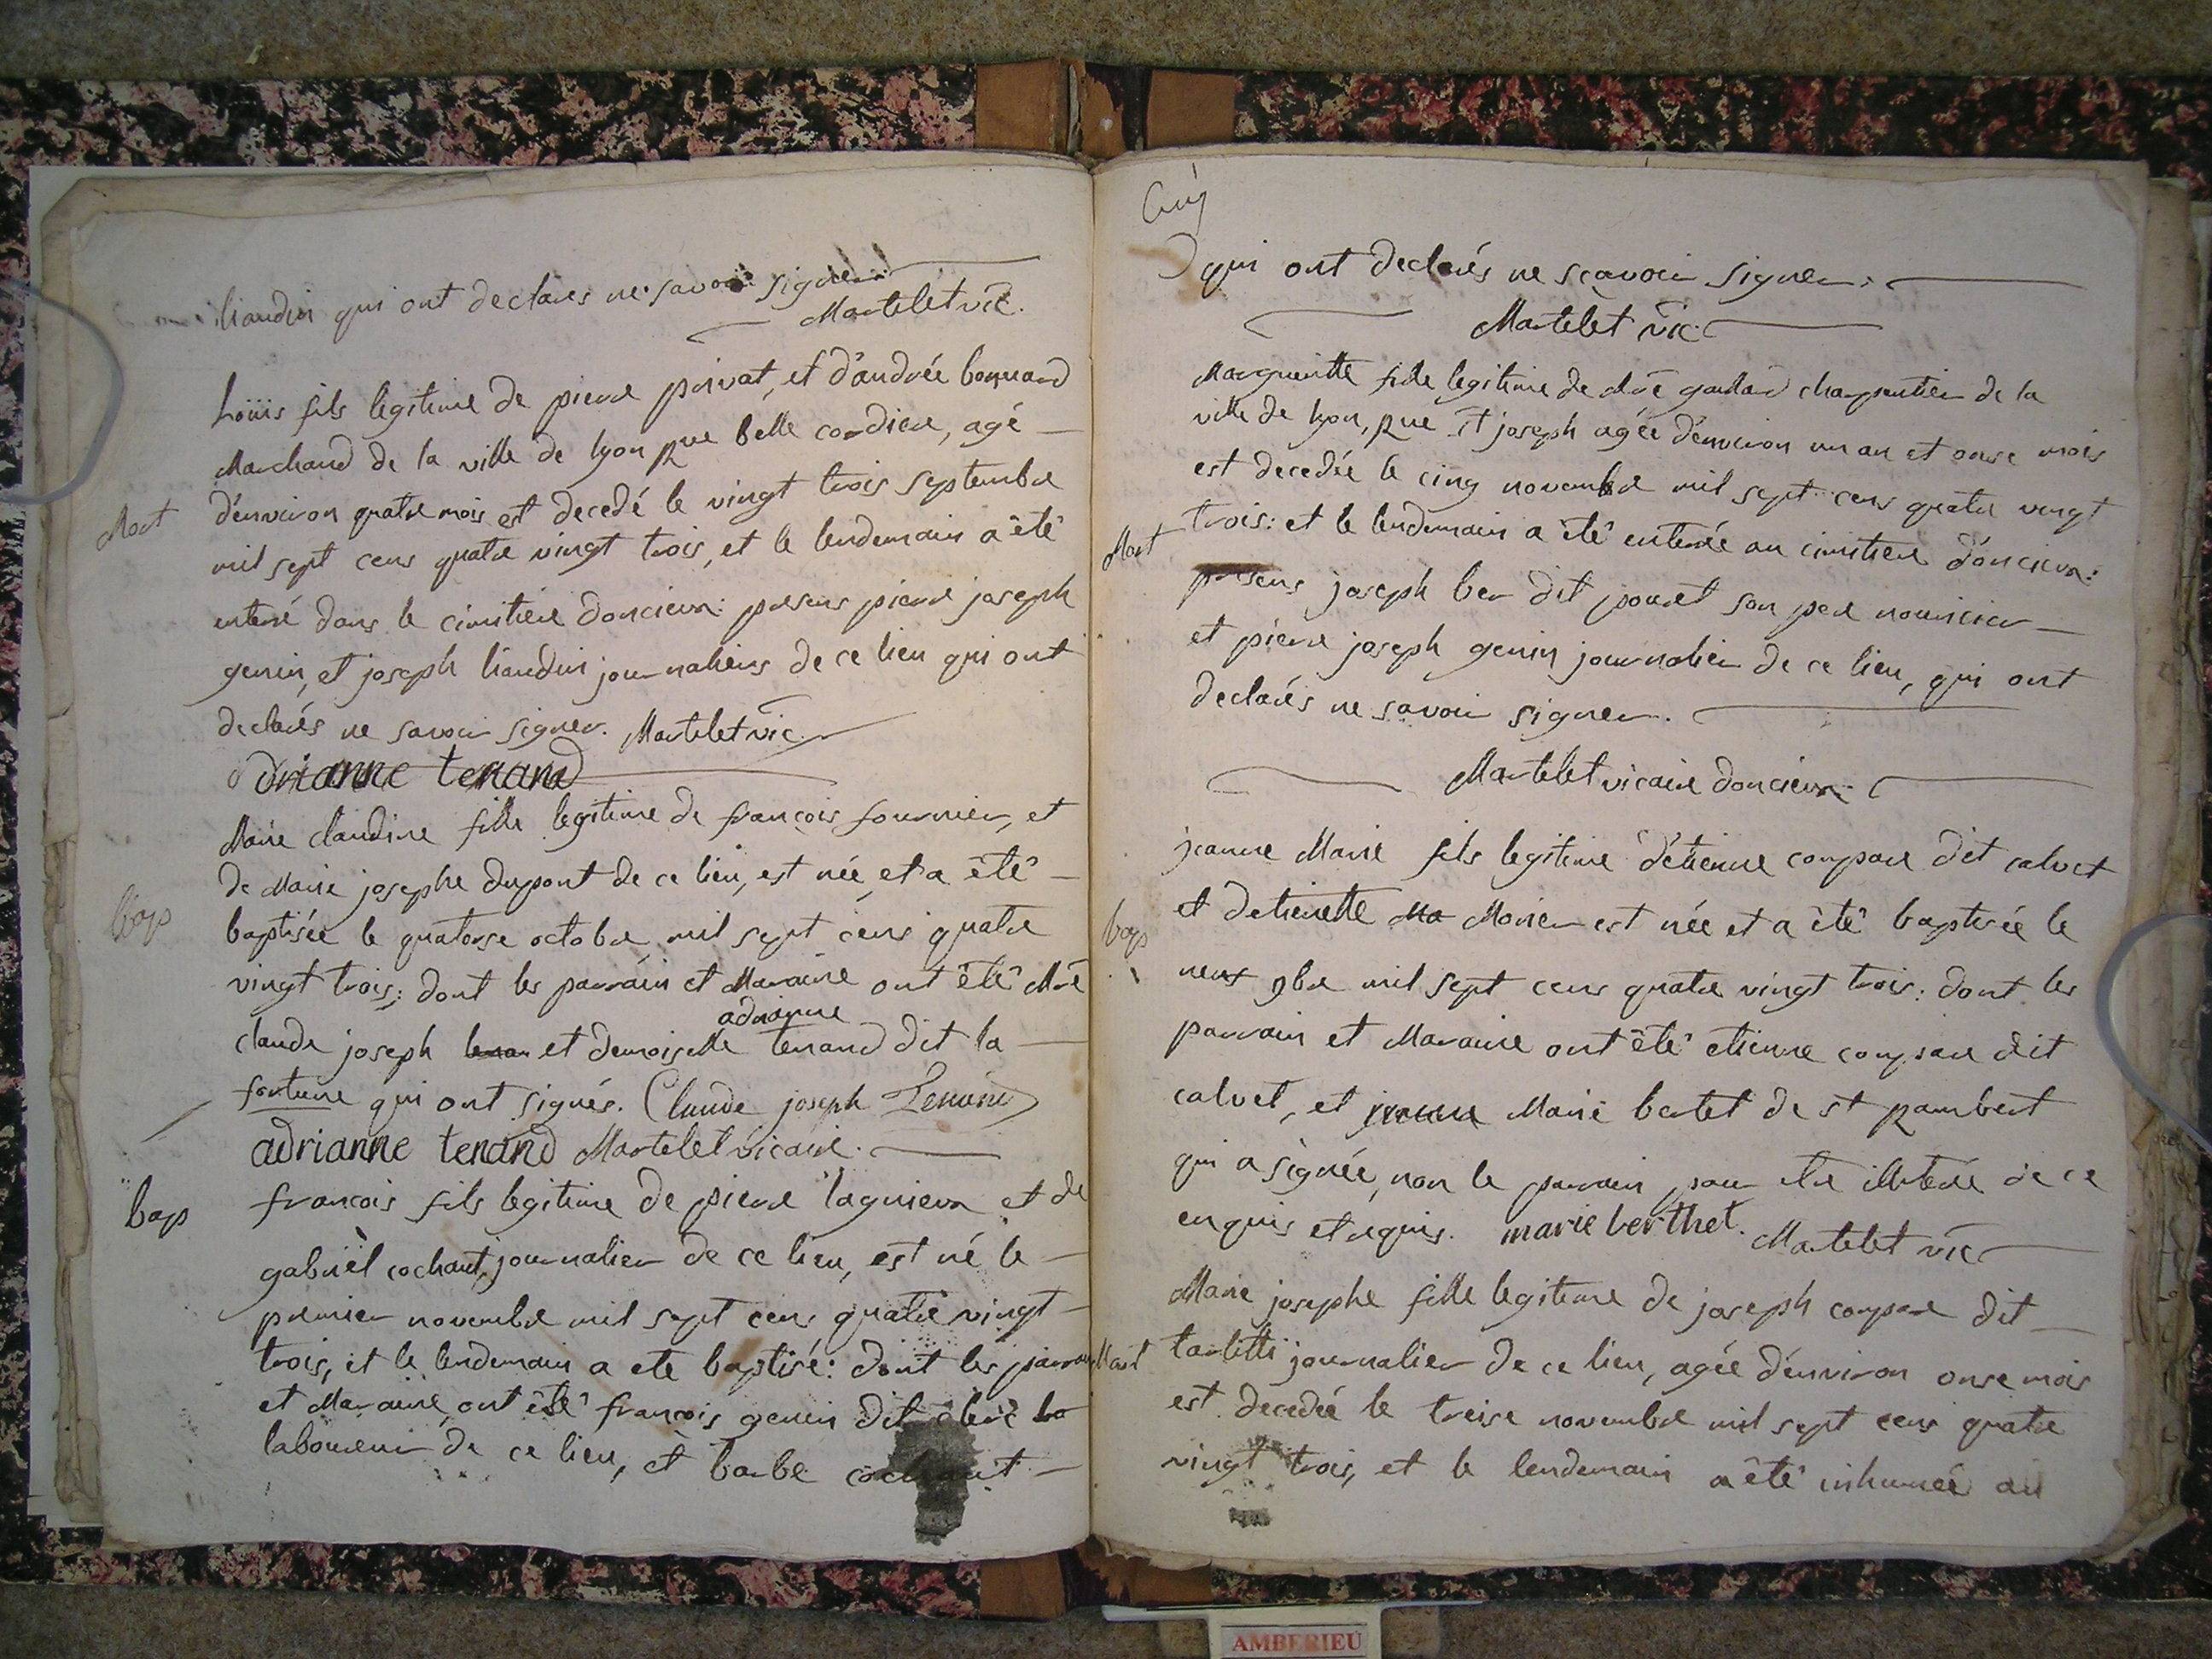 liaudin qui ont declarés ne savoir signer
Martelet vic.
Loüis fils legitime de pierre privat, et d'andrée bonnard
Marchand de la ville de lyon rue belle cordiere, agé
Mort
d'environ quatre mois est decedé le vingt trois septembre
mil sept cens quatre vingt trois, et le lendemain a êtê
enterré dans le cimitiére doncieux: presens pierre joseph
genin, et joseph liaudin journaliers de ce lieu qui ont
declarés ne savoir signer. Martelet vic.
adrianne tenand
Marie claudine fille legitime de françois fournier, et
de Marie josephe dupont de ce lieu, est née, et a êtê
bap
baptisée le quatorse octobre mil sept cens quatre
vingt trois; dont les parrain et Maraine ont êtê Mre
adrianne
claude joseph tenan et demoiselle tenand dit la
fortune qui ont signés. Claude joseph Tenand
adrianne tenand Martelet vicaire.
bap
francois fils legitime de pierre lagnieux et de
gabriel cochant, journalier de ce lieu, est né le
premier novembre mil sept cens quatre vingt
trois, et le lendemain a ete baptisé: dont les parrain
et Maraine, ont êtê françois genin dit
laboureur de ce lieu, et barbe cochant
Cinq
qui ont declarés ne sçavoir signer.
Martelet vic.
Marguerite fille legitime de Mre charpentier de la
ville de lyon, rue st joseph agée d'environ un an et onse mois
est decedée le cinq novembre mil sept cens quatre vingt
Mort
trois: et le lendemain a êtê enterrée au cimitiere d'oncieux:
presens joseph ber dit pouret son pere nourricier
et pierre joseph genin journalier de ce lieu, qui ont
declarés ne savoir signer.
Martelet vicaire doncieux
jeanne Marie fils legitime d'etienne compare dit calvet
et detienette Ma Morier est née et a êtê baptisée le
bap
neuf 9bre mil sept cens quatre vingt trois: dont les
parrain et Maraine ont êtê etienne compare dit
calvet, et jeanne Marie bertet de st rambert
qui a signée, non le parrain pour etre illiteré de ce
enquis et requis. marie berthet. Martelet vic
Marie josephe fille legitime de joseph compare dit
Mort
tarlitti journalier de ce lieu, agée d'environ onse mois
est decedée le treise novembre mil sept cens quatre
vingt trois, et le lendemain a êtê inhumée au
AMBERIEU